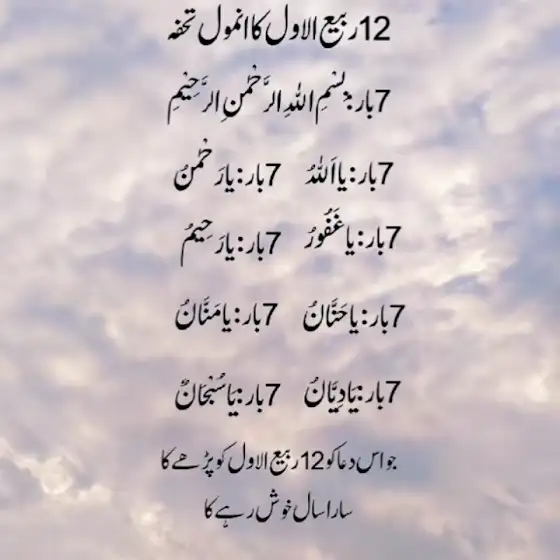 12 ربیع الاول کا انمول تحفہ
7بار: بِسْمِ اللّٰهِ الرَّحْمٰنِ الرَّحِیْمِ
7بار: یا اَللّٰهُ 7بار: یا رَحْمٰنُ
7بار: یا غَفُوْرُ 7بار: یا رَحِیْمُ
7بار: یا حَنَّانُ 7بار: یا مَنَّانُ
7بار: یَا دِیَّانُ 7بار: یَا سُبْحَانُ
جو اس دعا کو 12 ربیع الاول کو پڑھے کا
سارا سال خوش رہے کا